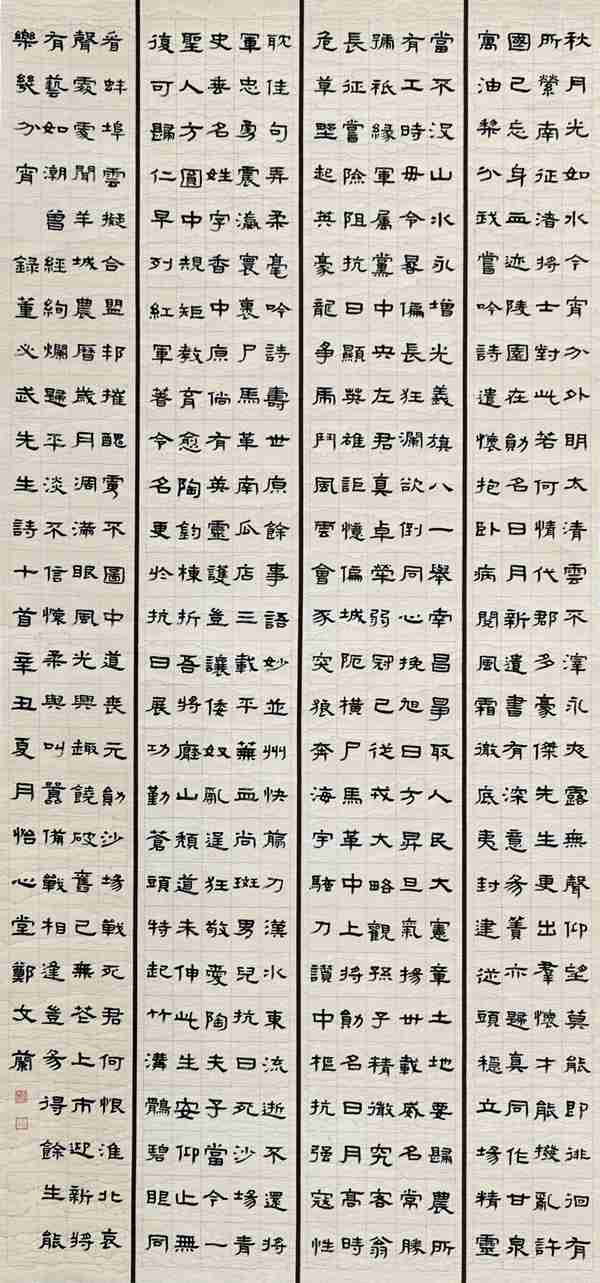 秋月光如水今宵分外明太清雲不滓永夜露無聲仰望莫能即徘徊有
所縈南征渚將士對此若何情代郡多豪傑先生更出羣懷才能撥亂許
國已忘身血迹陵園在勛名日月新遺書有深意易簀亦歸真同作甘泉
寓油黎分我嘗吟詩遣懷抱臥病閱風霜徹底夷封建從頭穩立場精靈
當不沒山水永增光義旗八一舉南昌爭取人民大憲章土地要歸農所
有工時毋令晷偏長狂瀾欲倒同心挽旭日方昇旦氣揚卅載威名常勝
號祇緣軍屬黨中央左君真卓犖弱冠已從戎大略觀孫子精微究客翁
長征嘗險阻抗日顯英雄詎憶偏城阨橫尸馬革中上將勛名日月高時
危草野起英豪龍爭虎鬥風雲會豕突狼奔海宇騷力讚中樞抗强寇性
耽佳句弄柔毫吟詩壽世原餘事語妙並州快翦刀漢水東流逝不還將
軍忠勇震瀛寰裹尸馬革南瓜店三載平蕪血尚斑男兒抗日死沙場青
史垂名姓字香中原倘有英靈護豈讓倭奴亂逞狂敬愛陶夫子當今一
聖人方圓中規矩教育愈陶鈞棟折吾將廱山頹道未伸此生安仰止無
復可歸仁早列紅軍著令名更於抗日展功勤蒼頭特起竹溝鶻碧眼同
看蚌埠雲擬合盟邦摧醜虜不圖中道喪元勛沙場戰死君何恨淮北哀
聲處處聞羊城農曆歲月凋滿眼風光興趣饒破舊已無花上市迎新將
有藝如潮曾經絢爛歸平淡不信懷柔與叫囂備戰相逢豈易得餘生能
樂幾分宵 錄董必武先生詩十首辛丑夏月怡心堂鄭文蘭